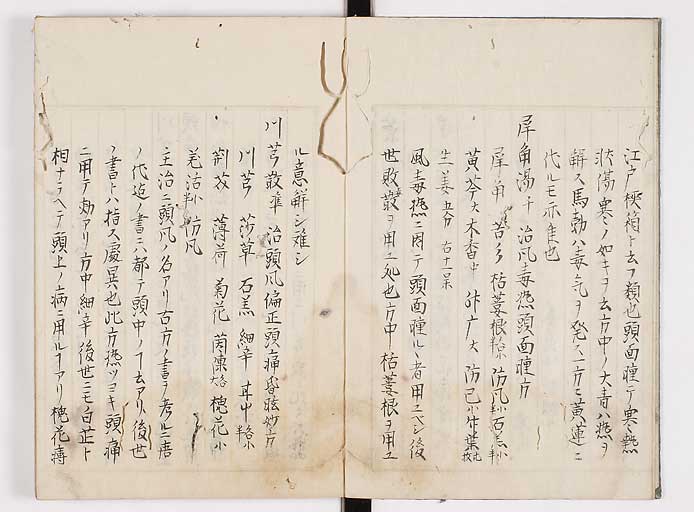 江戸硬箱ト云フ類也頭面腫テ寒熱
状傷寒ノ如キヲ云方中ノ大青ハ熱ヲ
解ス馬勃ハ毒気ヲ発ス一方ニ黄連ニ
代ルモ亦佳也
犀角湯 千 治風毒熱頭面腫方
犀角 苦参 栝蔞根 防風 石羔
黄芩大 木香中 升麻大 防已小 竹葉
生姜五分 右十一味
風毒熱ニ因テ頭面腫ルヽ者用ユベシ後
世敗毒散ヲ用ユ処也方中栝蔞根ヲ用ユ
ル意解シ難シ
川芎散 準 治頭風偏正頭痛昏眩妙方
川芎 莎草 石羔 細辛 甘中
荊芥 薄荷 菊花 茵蔯 槐花小
羌活 防風
主治ニ頭風ノ名アリ古方ノ書ヲ考ルニ唐
ノ代迄ノ書ニハ都テ頭中ノ
ノ書トハ指ス処異也此方熱ツヨキ頭痛
ニ用テ効アリ方中細辛後世ニモ白芷ト
相ナラヘテ頭上ノ病ニ用ルヿアリ槐花痔